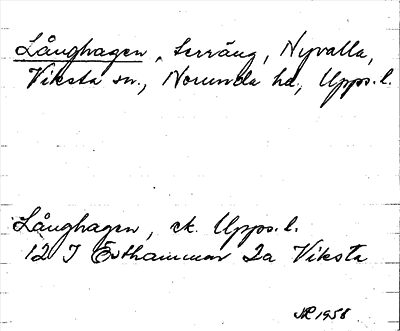 Långhagen, terräng, Nyvalla,
Viksta sn., Norunda hd., Upps. l.
Långhagen, ek. Upps. l.
12 I Östhammar 2a Viksta
1958